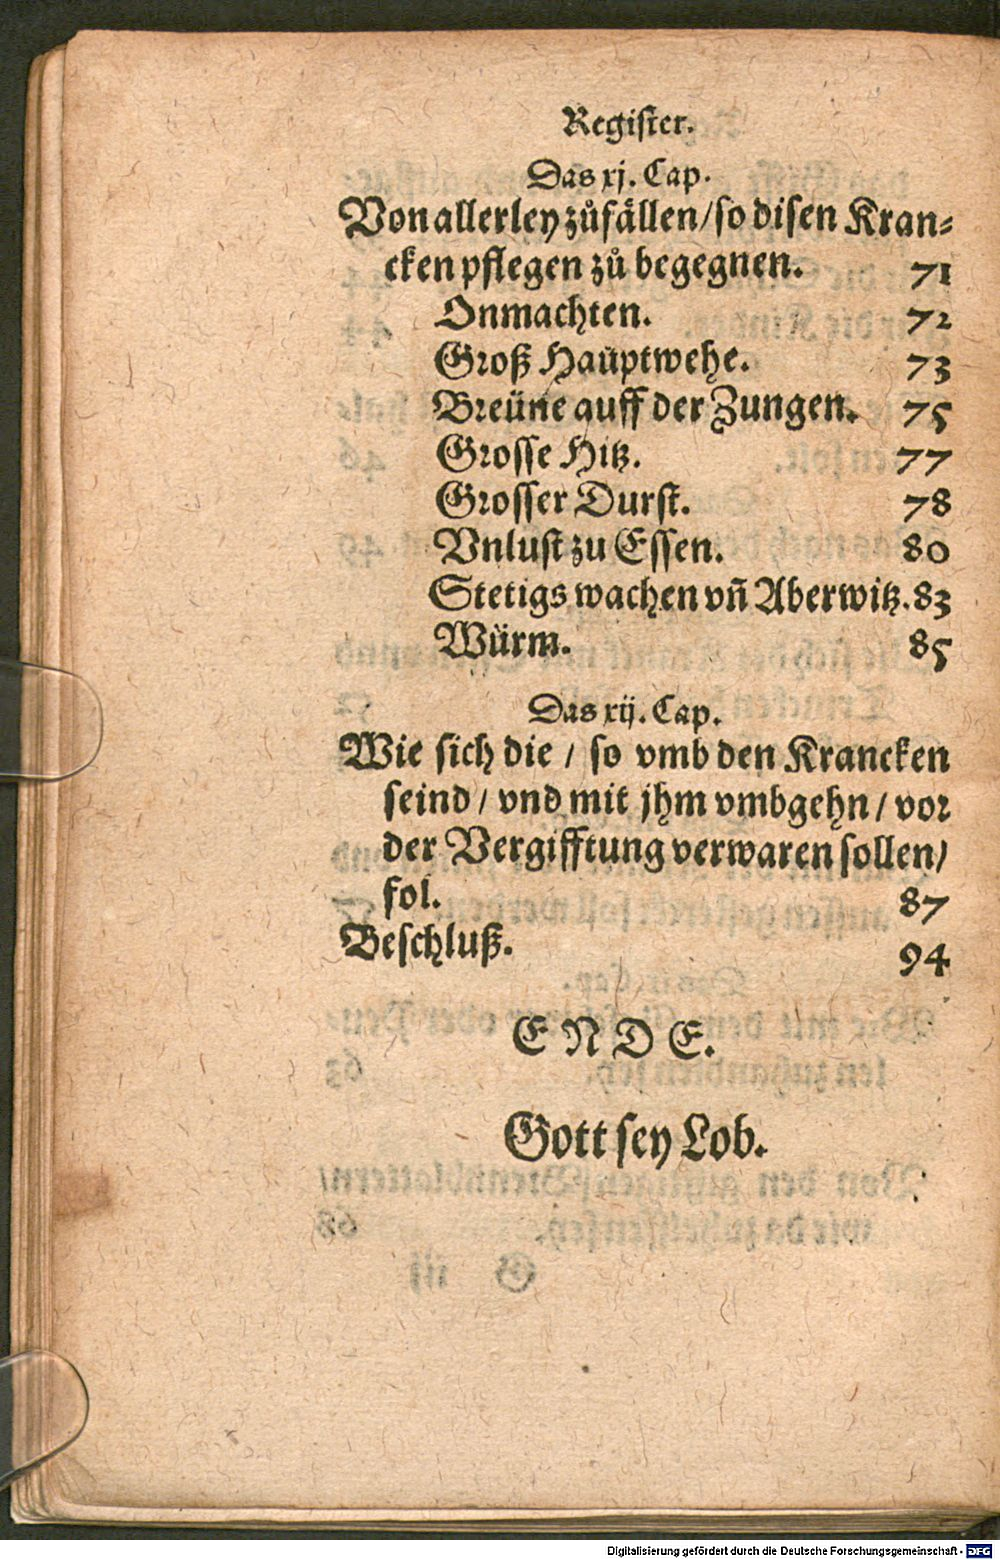 Register.
Das xj. Cap.
Von allerley zůfällen/ so disen Kran⸗
cken pflegen zů begegnen. 71
Onmachten. 72
Groß Haüptwehe. 73
Breüne auff der Zungen. 75
Grosse Hitz. 77
Grosser Durst. 78
Vnlust zu Essen. 80
Stetigs wachen vñ Aberwitz. 83
Würm. 85
Das xij. Cap.
Wie sich die / so vmb den Krancken
seind / vnd mit jhm vmbgehn / vor
der Vergifftung verwaren sollen/
fol. 87
Beschluß. 94
E N D E.
Gott sey Lob.
Digitalisierung gefördert durch die Deutsche Forschungsgemeinschaft - DFG